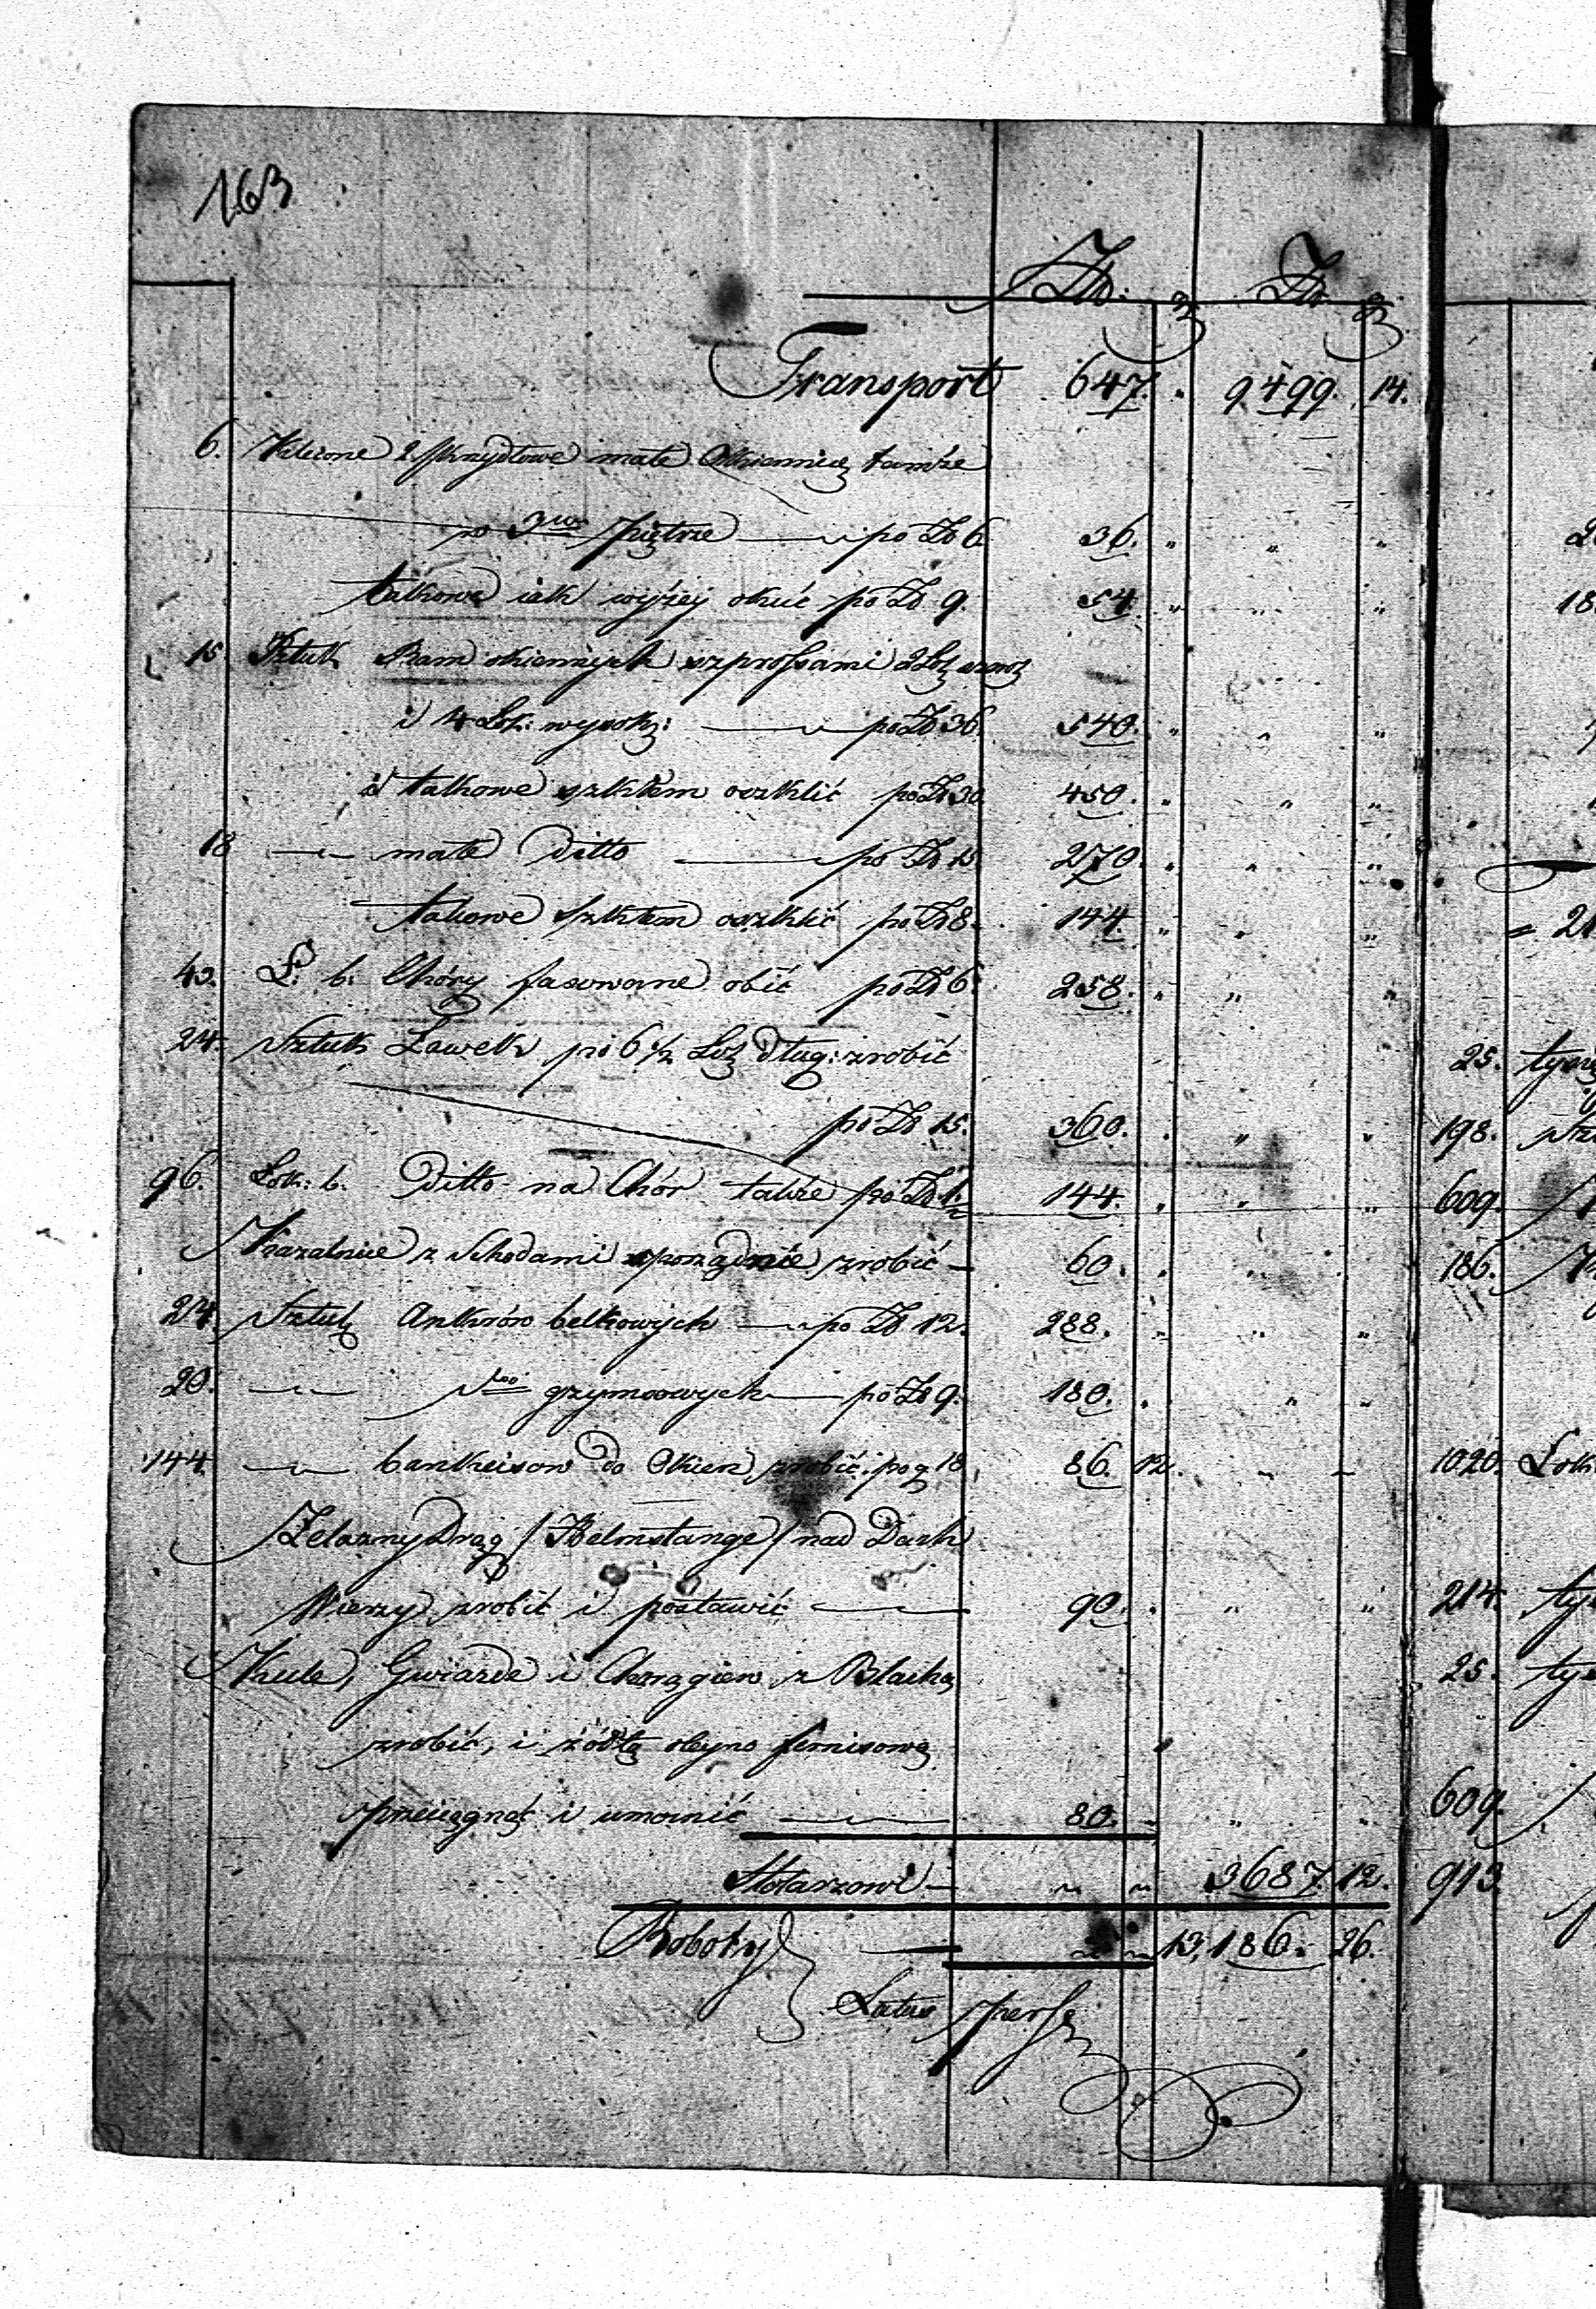 163
Zł: gr Zł gr
Transport 647. " 9499. 14.
6. Kleione 2 skrzydłowe małe Okiennicę tamże
w 3cim piętrze — po Zł 6. 36. " " "
takowe iak wyżey okuć po Zł 9. 54. " " "
15. Sztuk Ram okiennych szprossami 2 Łok szerok
i 4 Łok: wysok: — po Zł 36. 540. " " "
i takowe szkłem oszklić po Zł 30 450. " " "
18 — małe Ditto — po Zł 15 270. " " "
takowe szkłem oszklić po Zł 8. 144. " " "
43. Ł: b: Chóry fasowane obić po Zł 6. 258. " " "
24. Sztuk Ławek po 6 1/2 Łok dług: zrobić
po Zł 15. 360. " " "
96. Łok: b. Ditto na Chór także po Zł 1 1/2 144. " " "
Kazalnice z Schodami zporządnie zrobić — 60. " " "
24. Sztuk Ankrów belkowych — po Zł 12. 288. " " "
20. — dto grzymsowych — po Zł 9. 180. " " "
144. — bankeisow do Okien zrobić po g 18. 86. 12. " "
Żelazny Drąg / Helmstange / nad Dach
Wierzy zrobić i postawić — 90. " " "
Kule, Gwiazde i Chorągiew z Blachą
zrobić, i żółtą oleyno fernisową
przeciągnąć i umocnić — 80. " " "
Stolarzowi — " " 3687 12.
Roboty — " " 13,186. 26.
Latus per se
25.
198.
609.
186.
1020. Łok
214.
25.
609.
913